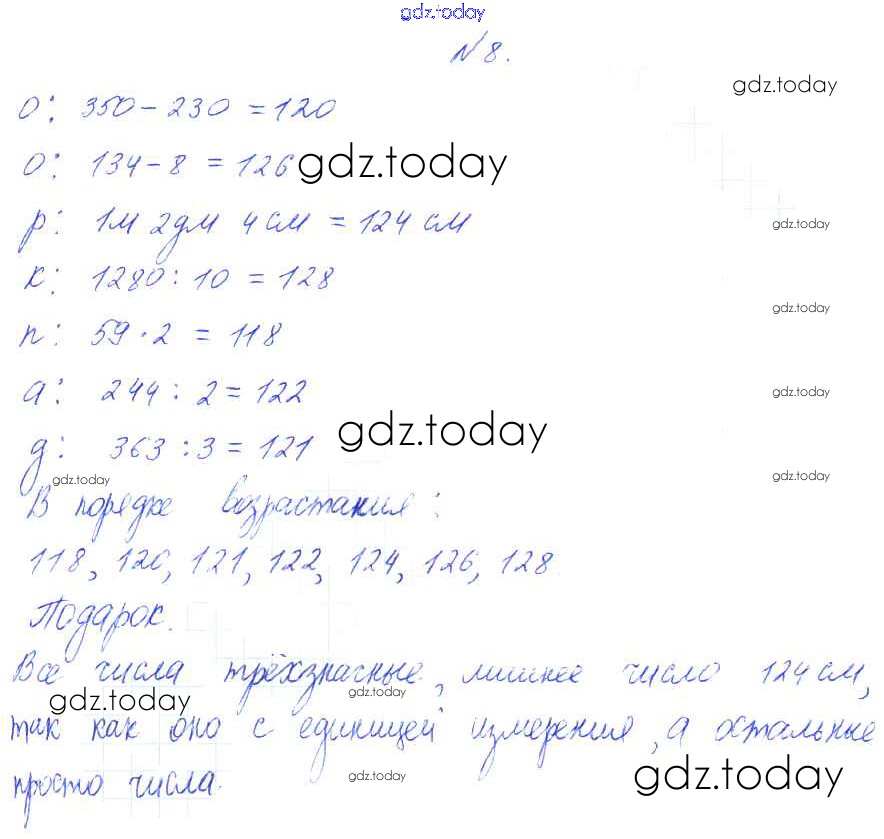 gdz.today
№8.
gdz.today
о: 350-230 =120
о: 134-8 = 126
gdz.today
р: 1м 2дм 4см = 124 см
gdz.today
к: 1280:10 = 128
gdz.today
п: 59·2 = 118
а: 244: 2=122
gdz.today
д: 363:3=121
gdz.today
gdz.today
gdz.today
В порядке возрастания:
118, 120, 121, 122, 124, 126, 128.
Подарок.
Все числа трёхзначные, лишнее число 124см,
gdz.today
gdz.today
так как оно с единицей измерения, а остальные
просто числа.
gdz.today
gdz.today